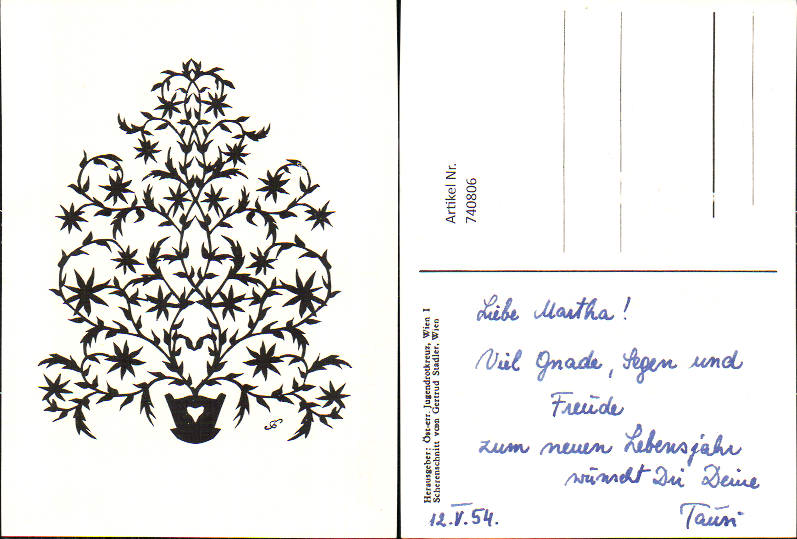 Artikel Nr.
740806
Herausgeber: Öst-err. Jugendrotkreuz, Wien I
Scherenschnitt von Gertrud Stadler, Wien
Liebe Martha!
Viel Gnade, Segen und
Freude
zum neuen Lebensjahr
wünscht Dir Deine
12.V.54.